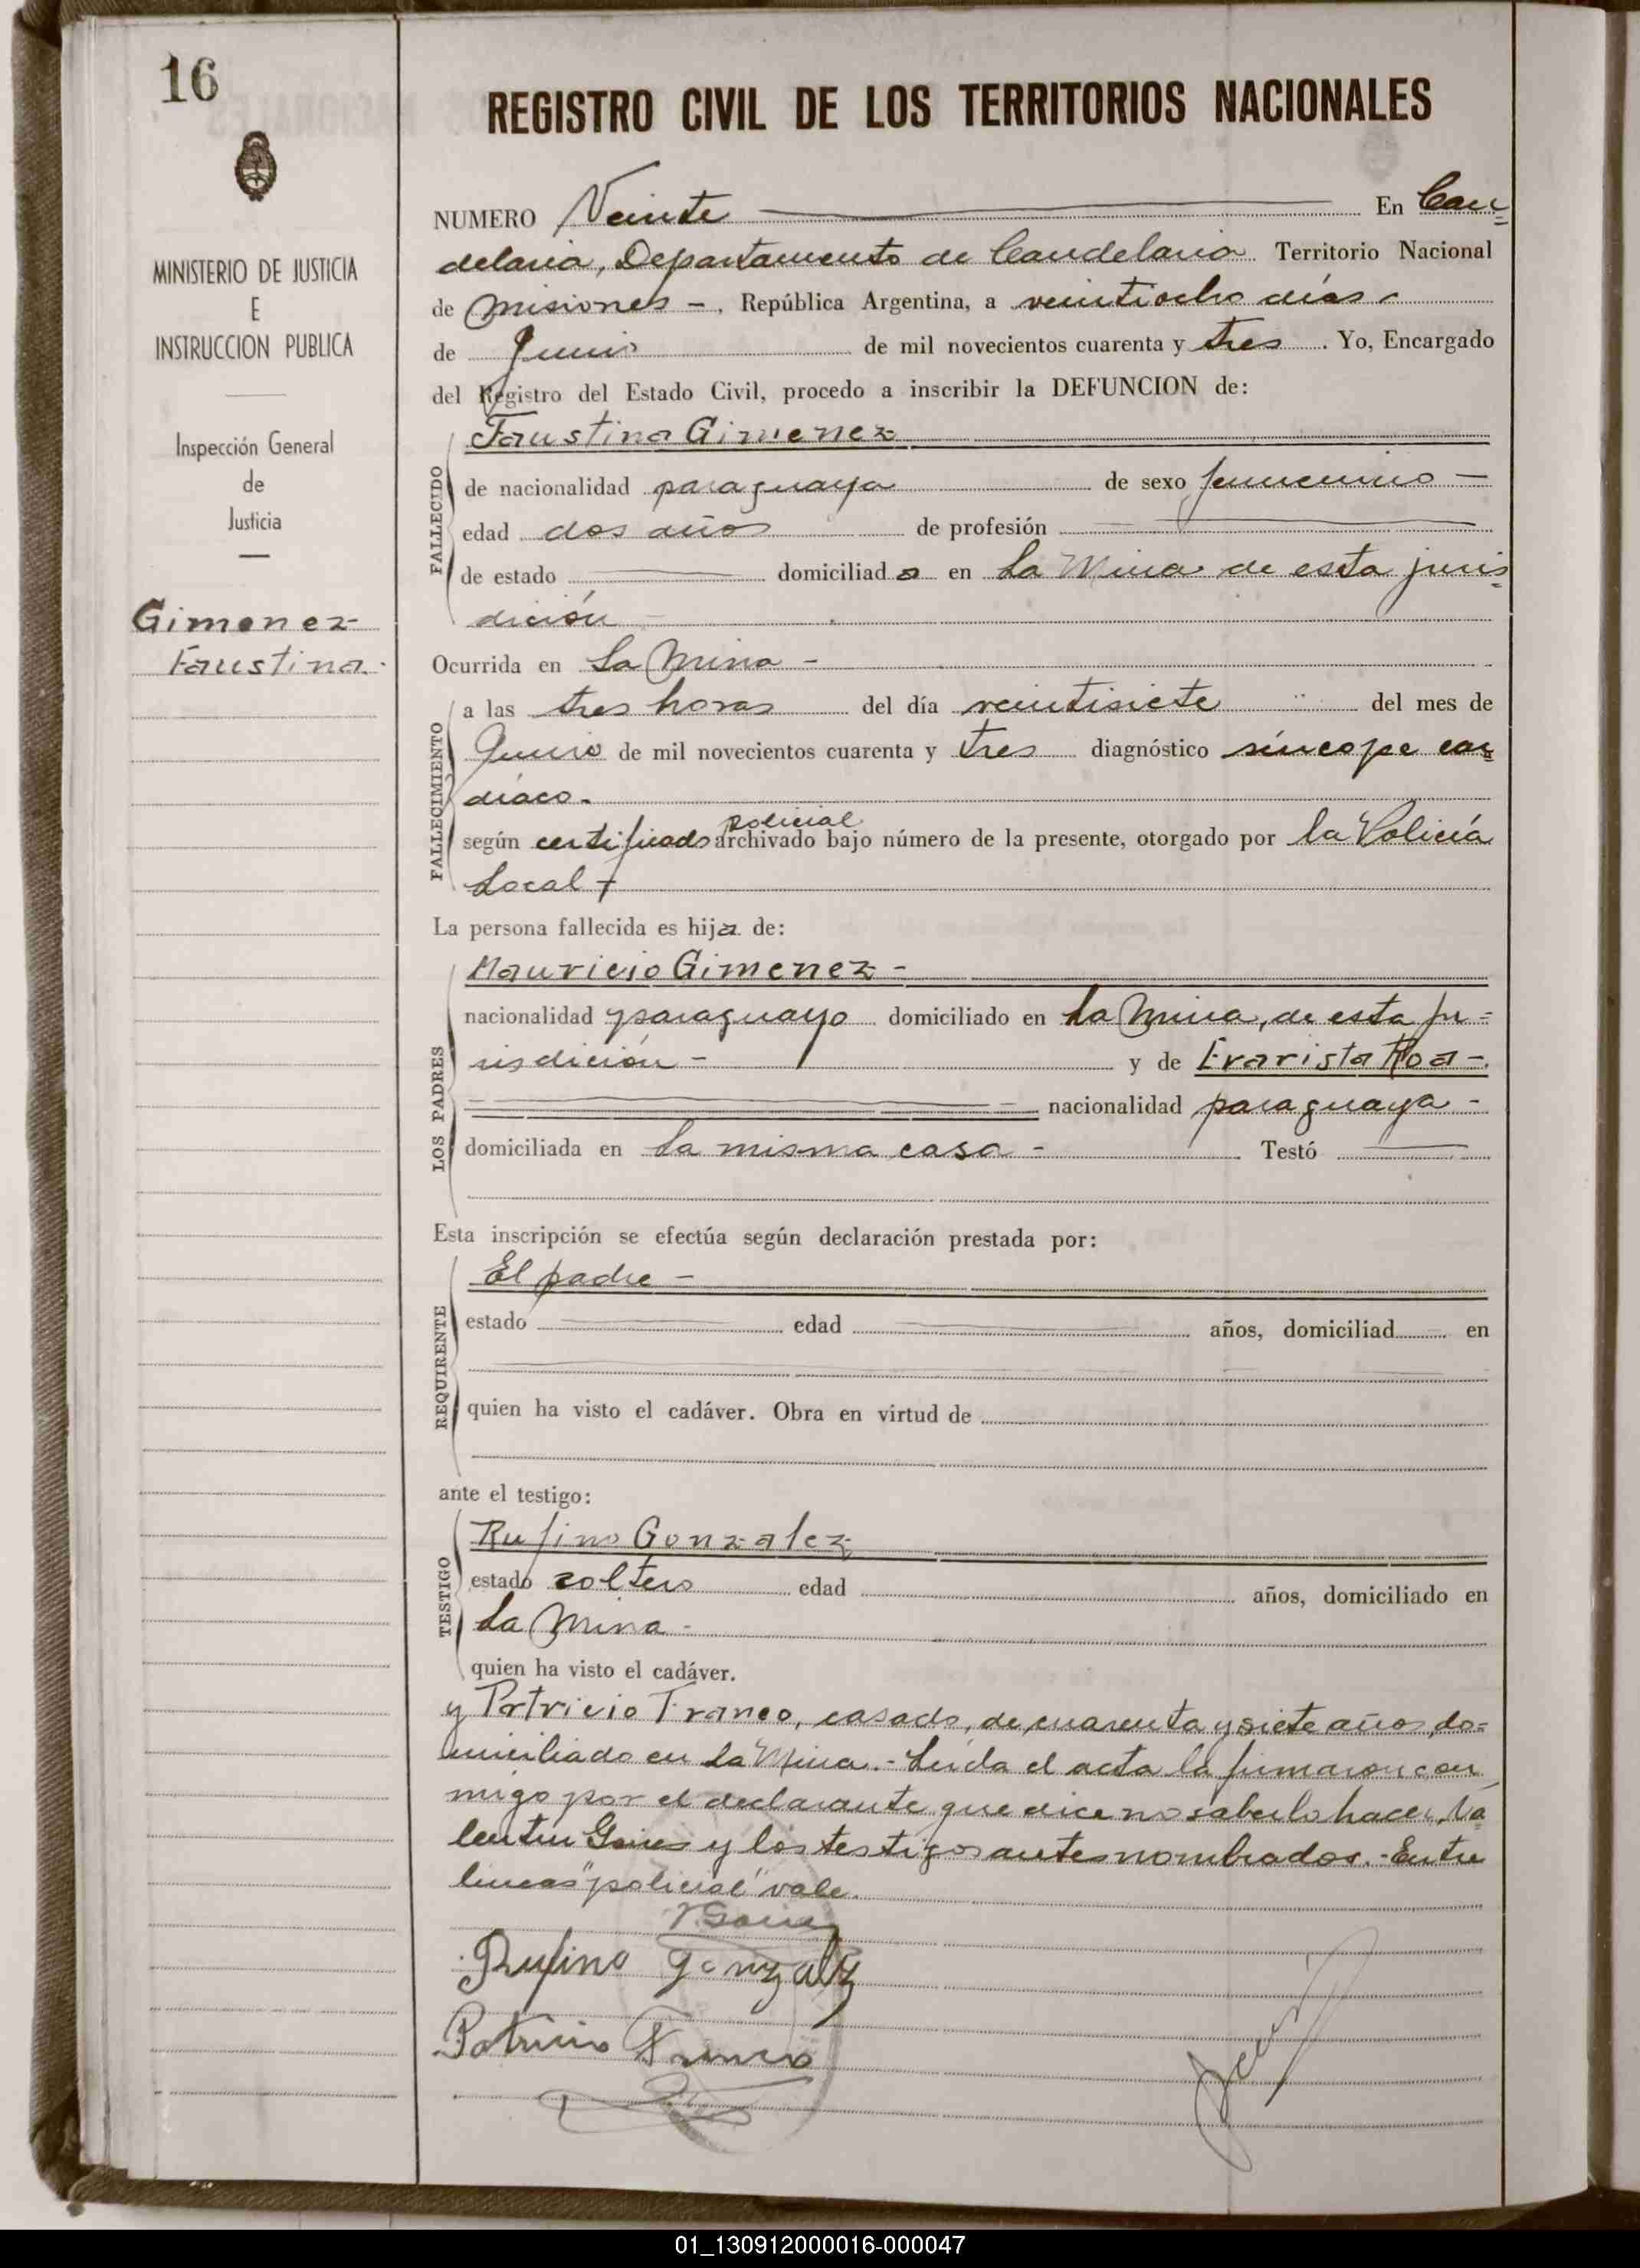 16
MINISTERIO DE JUSTICIA
E
INSTRUCCION PUBLICA
Inspección General
de
Justicia
Gimenez
Faustina.
REGISTRO CIVIL DE LOS TERRITORIOS NACIONALES
NUMERO Veinte En Can=
delaria, Departamento de Candelaria Territorio Nacional
de Misiones -, República Argentina, a veintiocho días
de Junio de mil novecientos cuarenta y tres. Yo, Encargado
del Registro del Estado Civil, procedo a inscribir la DEFUNCION de:
FALLECIDO
Faustina Gimenez
de nacionalidad paraguaya de sexo femenino -
edad dos años de profesión
de estado domiciliada en La Mina de esta juris=
dición
Ocurrida en La Mina -
FALLECIMIENTO
a las tres horas del día veintisiete del mes de
Junio de mil novecientos cuarenta y tres diagnóstico síncope car=
díaco.
policial
según certificado archivado bajo número de la presente, otorgado por la Policía
Local -
La persona fallecida es hija de:
LOS PADRES
Mauricio Gimenez -
nacionalidad paraguayo domiciliado en La Mina, de esta ju=
risdición - y de Evarista Roa -.
nacionalidad paraguaya -
domiciliada en La misma casa - Testó
Esta inscripción se efectúa según declaración prestada por:
REQUIRENTE
El padre -
estado edad años, domiciliad en
quien ha visto el cadáver. Obra en virtud de
ante el testigo:
TESTIGO
Rufino Gonzalez
estado soltero edad años, domiciliado en
La Mina -
quien ha visto el cadáver.
y Patricio Franco, casado, de cuarenta y siete años, do=
miciliado en La Mina.- Leída el acta la firmaron con
migo por el declarante que dice no saberlo hacer, Va
lentin Goires y los testigos antes nombrados.- Entre
lineas "policial" vale.
Rufino Gonzalez
Patricio Franco
01_130912000016-000047